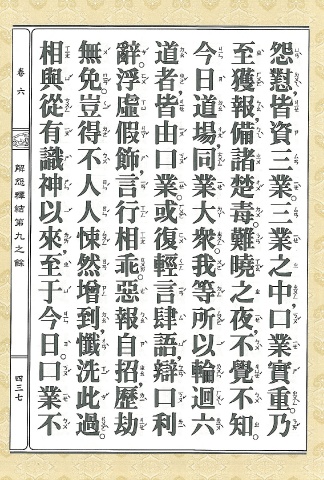 怨懟，皆資三業。三業之中口業實重，乃
至獲報，備諸楚毒。難曉之夜，不覺不知。
今日道場，同業大眾。我等所以輪迴六
道者，皆由口業。或復輕言肆語，辯口利
辭，浮虛假飾，言行相乖。惡報自招，歷劫
無免。豈得不人人悚然增到，懺洗此過。
相與從有識神以來，至于今日，口業不
卷六
解怨釋結第九之餘
四三七